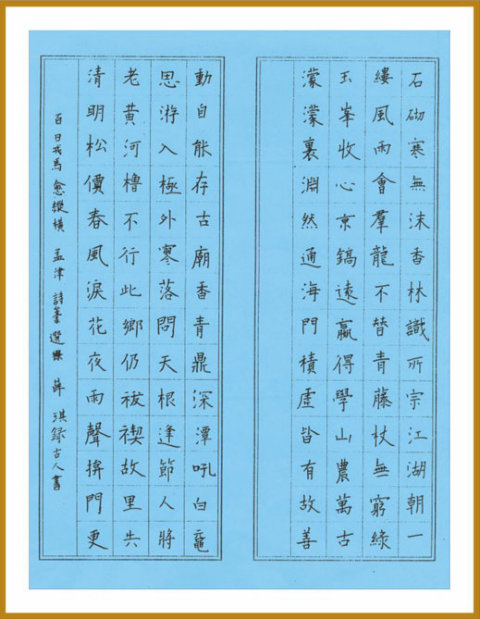 石砌寒無沫香林識所宗江湖朝一
縷風雨會羣龍不替青藤杖無窮綠
玉峯收心京鎬遠贏得學山農萬古
濛濛裏淵然通海門積虛皆有故善
動自能存古廟香青鼎深潭吼白黿
思游入極外寥落問天根逢節人將
老黃河櫓不行此鄉仍祓禊故里共
清明松價春風淚花夜雨聲掩門更
百日戎馬愈縱橫孟津詩 選 薛淇録古人書